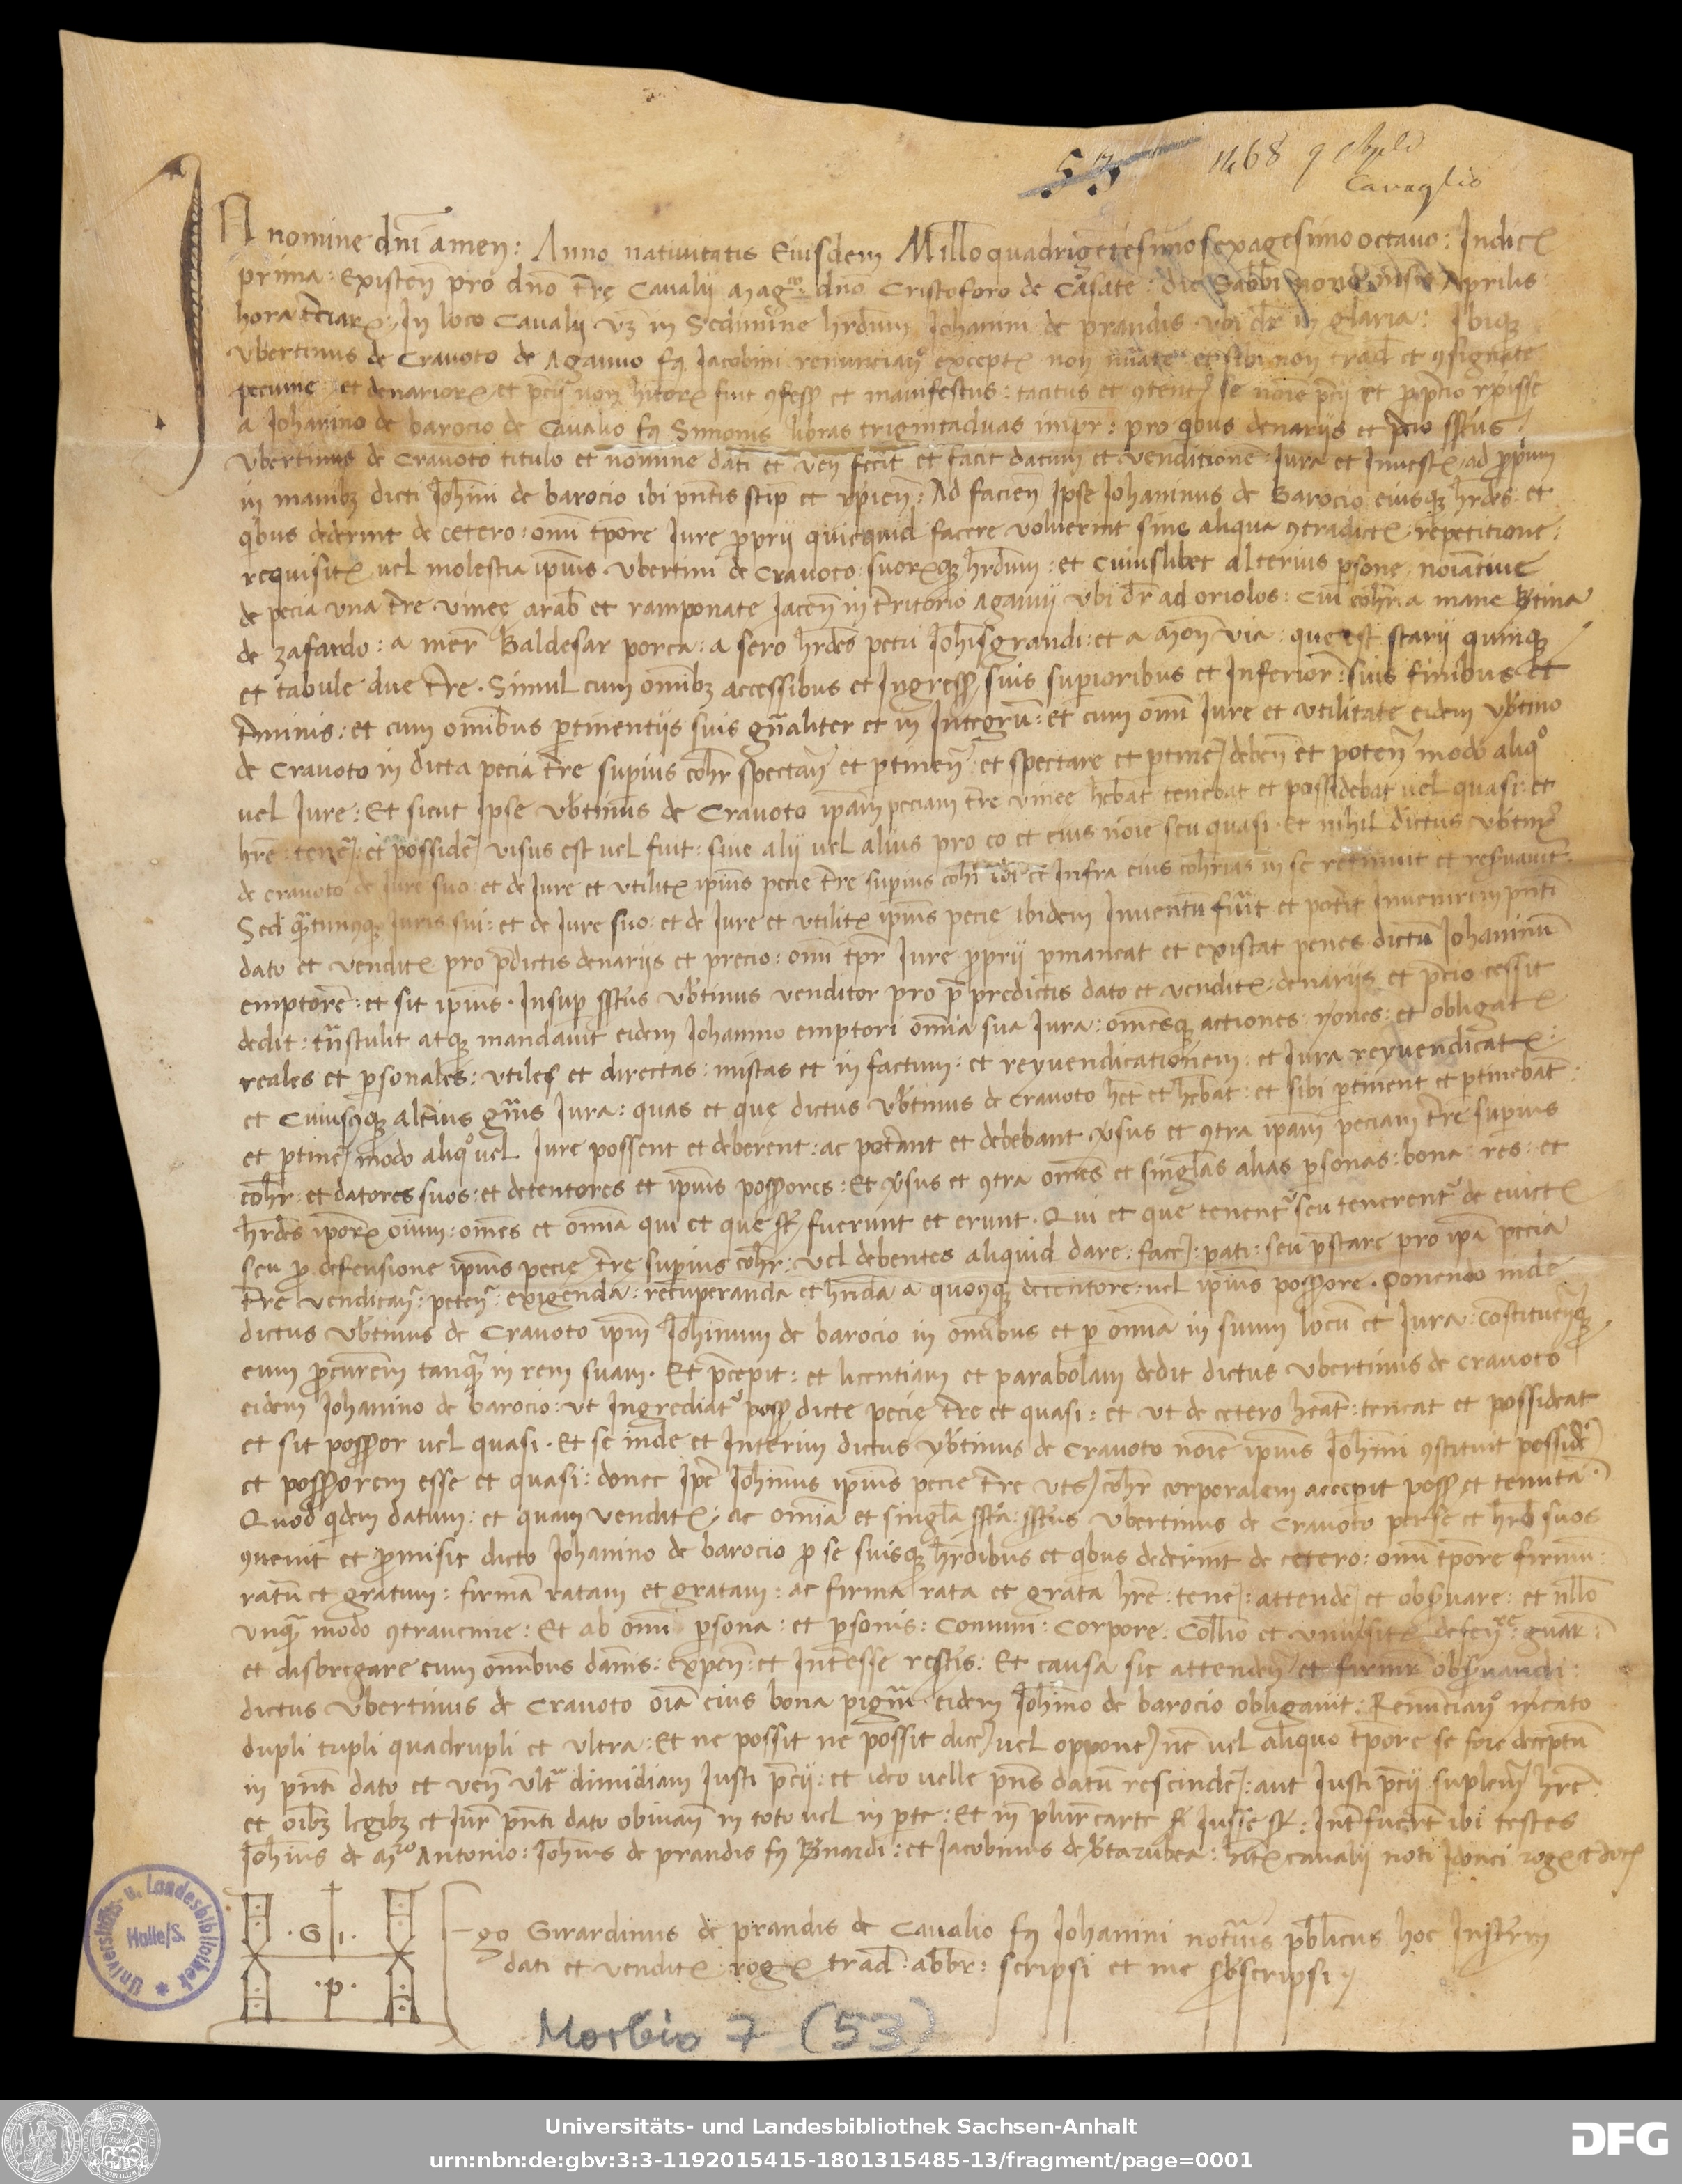 53
1468 9 Aprile
Cavaglio
IN nomine dnī amen: Anno nativitatis Eiusdem Millō quadrigētesimo sexagesimo octauo: Indic̄
prima: Existeñ pro dn̄o tr̄e Caualij mag.co dn̄o Cristoforo de Casate: die Sabbi nono mn̄sis Aprilis
hora t̄ciar: In loco Caualij vz in Sedimīne hrdum Iohanini de prandis vbi dr̄ in glaria: Ibiq
vbertinus de Crauoto de Agamio fq Iacobini renuncian.o except non nūate et sibi non trad et ꝯsignate
pecunie et denarior et pcij non hitor fuit ꝯfess et manifestus: tacitus et ꝯtent se noīe pcij et p pcio rpisse
a Iohanino de barocio de Caualio fq Simonis libras trigintaduas impr: pro qbus denarijs et pcio sstus
vbertinus de Crauoto titulo et nomine dati et ven fecit et facit datum et venditionē Iura et Inuest ad pprium
in manibz dicti Iohīni de barocio ibi pn̄tis stip et rpien: Ad facien Ipse Iohaninus de Barocio eiusq hrdes et
qbus dederint de cetero: omī tpore Iure pprij quicquid facere voluerint sine aliqua ꝯtradict repetitione:
requisit vel molestia ipīus vbertini de Crauoto suorq hrdum: et cuiuslibet alterius psone noīatiue
de pecia vna tr̄e vinee arab et ramponate Iacen in tritorio Agamij vbi dr̄ ad oriolos: Cui cohr a mane Btina
de zafardo: a mer Baldesar porca: a sero hrdes petri Iohisgrandi: et a mon via: que est starij quinq
et tabule due tr̄e. Simul cum omibz accessibus et Ingress suis superioribus et Inferior: suis finibus et
tminis: et cum omibus ptinentijs suis gn̄aliter et in Integrū: et cum omi Iure et vtilitate eidem vbtino
de Crauoto in dicta pecia tr̄e supius cohr spectan et ptinen: et spectare et ptine deben et poten modo aliq.o
vel Iure: Et sicut Ipse vbtinus de Crauoto ipam peciam tr̄e vinee hebat tenebat et possidebat vel quasi: et
hre: tene: et posside visus est vel fuit: siue alij vel alius pro eo et eius noīe seu quasi. Et nihil dictus vbtin
de crauoto de Iure suo: et de Iure et vtilit ipīus pecie tr̄e supius cohr ibi et Infra eius cohrias in se retinuit et resuauit
Sed qtunq Iuris sui: et de Iure suo: et de Iure et vtilit ipīus pecie ibidem Inuentū fuit et potit Inueniri in pn̄ti
dato et vendit pro pdictis denarijs et precio: omi tpr Iure pprij pmaneat et existat penes dictū Iohaninū
emptorē: et sit ipīus. Insup sstus vbtinus venditor pro p predictis dato et vendit denarijs et pcio cessit
dedit: tn̄stulit atq mandauit eidem Iohanino emptori omīa sua Iura: omesq actiones rones: et obligat
reales et psonales: vtiles et directas: mistas et in factum: et reyuendicationem: et Iura reyuendicat:
et Cuiusꝯq altius gn̄is Iura: quas et que dictus vbtinus de Crauoto het et hebat: et sibi ptinent et ptinebat:
et ptine modo aliq.o vel Iure possent et deberent: ac poterant et debebant vsus et ꝯtra ipam peciam tr̄e supius
cohr: et datores suos: et detentores et ipīus possores: Et vsus et ꝯtra omes et singlas alias psonas: bona: res: et
hrdes ipor oīum: omes et omīa qui et que st fuerunt et erunt. Qui et que tenent seu tenerent de euict
seu p defensione ipīus pecie tr̄e supius cohr: vel debentes aliquid dare: face: pati: seu pstare pro ipa pecia
tr̄e vendican: peten: exigenda: recuperanda et hn̄da a quoꝯq detentore: vel ipīus possore. Ponendo inde
dictus vbtinus de Crauoto ipm Iohinum de barocio in omibus et p omīa in suum locū et Iura: constituensq
eum pcurem tanq in rem suam. Et pcepit: et licentiam et parabolam dedit dictus vbertinus de crauoto
eidem Iohanino de barocio: vt Ingrediat poss dicte pecie tr̄e et quasi: et vt de cetero heat: teneat et possideat
et sit possor vel quasi. Et se inde et Interim dictus vbtinus de Crauoto noīe ipīus Iohini ꝯstituit posside
et possorem esse et quasi: donec Ipe Iohinus ipīus pecie tr̄e vts cohr corporalem acceperit poss et tenutā.
Quod qdem datum: et quam vendit: ac omīa et singla ssta: sstus vbertinus de Crauoto per se et hrd suos
ꝯuenit et pmisit dicto Iohanino de barocio p se suisq hrdibus et qbus dederint de cetero: omi tpore firmū:
ratū et gratum: firmā ratam et gratam: ac firma rata et grata hre: tene: attende et obsuare: et nllo
vnq modo ꝯtrauenire: Et ab omi psona: et psonis: Comuni: Corpore: Collio et vniusit defen.re: guar:
et disbregare cum omibus damis: expen: et Interesse restis: Et causa sic attenden et firmit obsuandi:
dictus vbertinus de Crauoto oīa eius bona pign̄ri eidem Iohino de barocio obligauit: Renuncian.o mcato
dupli tripli quadrupli et vltra: Et ne possit ne possit dice vel oppone nc vel aliquo tpore se fore deceptū
in pn̄ti dato et ven vlt dimidiam Iusti pcij: et ideo velle pn̄s datū rescinde: aut Iusti pcij suplem hre:
et oībz legibz et Iur pn̄ti dato obuian in toto vel in pte: Et in plur carte fi Iusse st: Intfuert ibi testes
Iohinus de m.ro Antonio: Iohinus de prandis fq Bnardi: et Iacobinus de btazubea: hit caualij noti Idonei rog et voc
·G·I·
·p·
Ego Girardinus de prandis de Caualio fq Iohanini notrius pblicus hoc Instrm
dati et vendit rog trad: abbr: scripsi et me sbscripsi
Morbio 7 (53)
Universitäts- u. Landesbibliothek
Halle/S.
Universitäts- und Landesbibliothek Sachsen-Anhalt
urn:nbn:de:gbv:3:3-1192015415-1801315485-13/fragment/page=0001
DFG